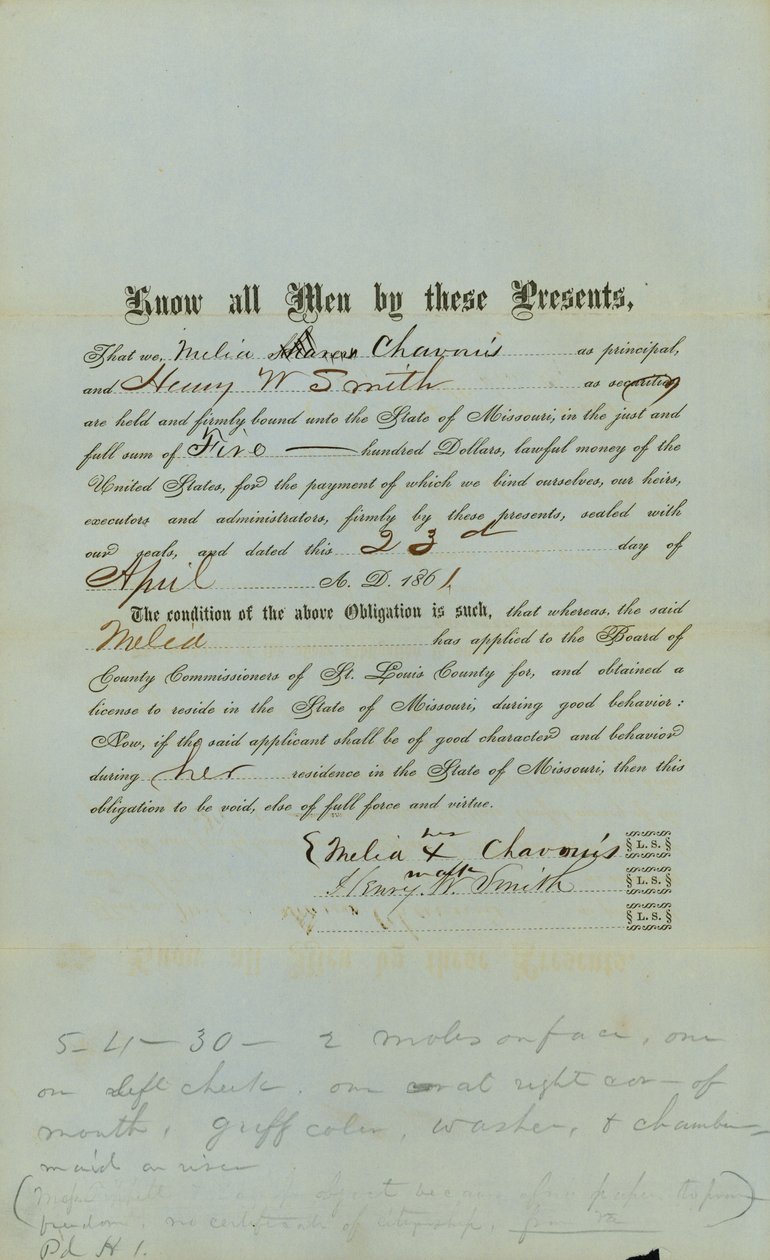 Know all Men by these Presents,
That we, Melia Chavouis as principal,
and Henry W Smith as securities
are held and firmly bound unto the State of Missouri, in the just and
full sum of Five — hundred Dollars, lawful money of the
United States, for the payment of which we bind ourselves, our heirs,
executors and administrators, firmly by these presents, sealed with
our seals, and dated this 23d day of
April A. D. 1861.
The condition of the above Obligation is such, that whereas, the said
Melia has applied to the Board of
County Commissioners of St. Louis County for, and obtained a
license to reside in the State of Missouri, during good behavior:
Now, if the said applicant shall be of good character and behavior
during her residence in the State of Missouri, then this
obligation to be void, else of full force and virtue.
her
Melia X Chavouis L. S.
mark
Henry W. Smith L. S.
L. S.
5-4-30- 2 moles on face, one
on left cheek. one at right cor- of
mouth, griff color, washer, & chamber-
maid on river
object because of no papers to prove
freedom, no certificate of citizenship,
Pd H 1.